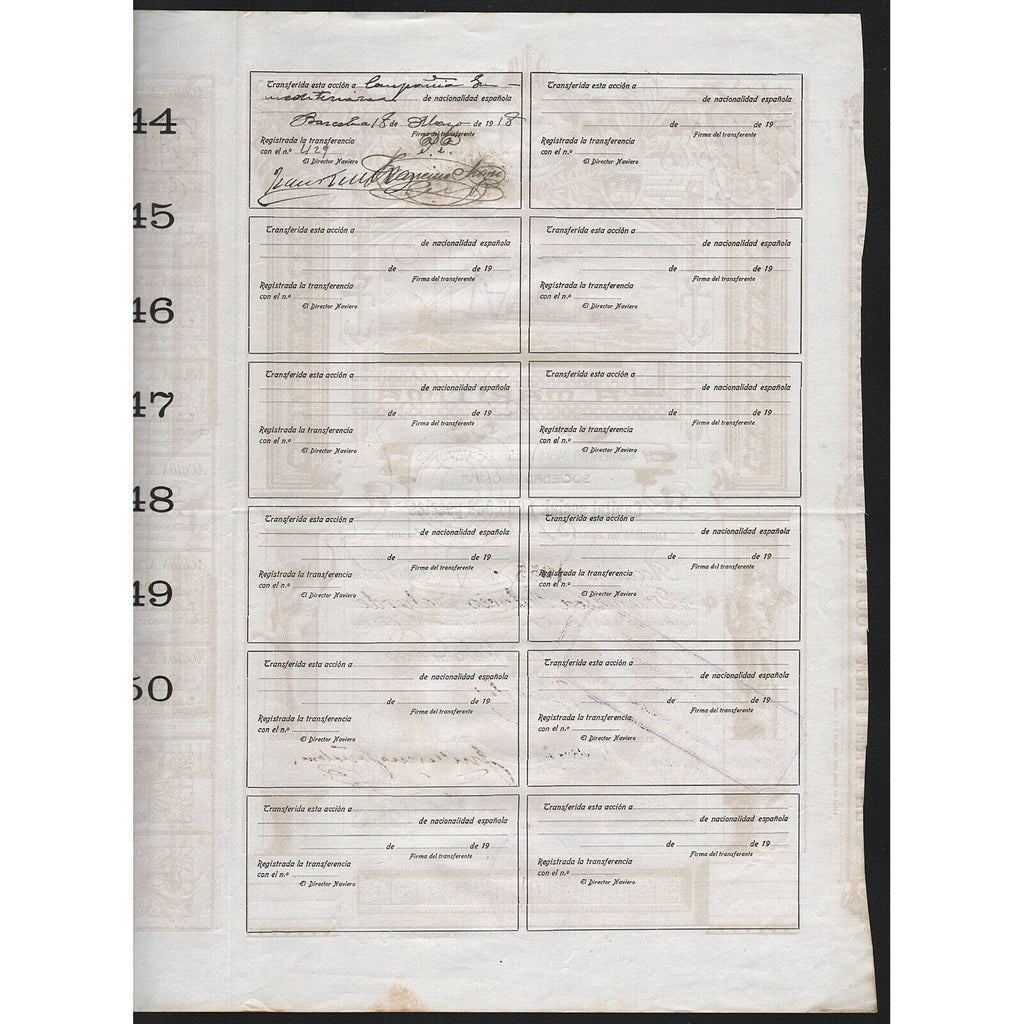 44
45
46
47
48
49
50
Transferida esta acción a Compañia
mediterranea de nacionalidad española
Barcelona 18 de Mayo de 1918
Firma del transferente
P.P.
Registrada la transferencia
con el n.º 429
El Director Naviero
Transferida esta acción a
de nacionalidad española
de de 19
Firma del transferente
Registrada la transferencia
con el n.º
El Director Naviero
Transferida esta acción a
de nacionalidad española
de de 19
Firma del transferente
Registrada la transferencia
con el n.º
El Director Naviero
Transferida esta acción a
de nacionalidad española
de de 19
Firma del transferente
Registrada la transferencia
con el n.º
El Director Naviero
Transferida esta acción a
de nacionalidad española
de de 19
Firma del transferente
Registrada la transferencia
con el n.º
El Director Naviero
Transferida esta acción a
de nacionalidad española
de de 19
Firma del transferente
Registrada la transferencia
con el n.º
El Director Naviero
Transferida esta acción a
de nacionalidad española
de de 19
Firma del transferente
Registrada la transferencia
con el n.º
El Director Naviero
Transferida esta acción a
de nacionalidad española
de de 19
Firma del transferente
Registrada la transferencia
con el n.º
El Director Naviero
Transferida esta acción a
de nacionalidad española
de de 19
Firma del transferente
Registrada la transferencia
con el n.º
El Director Naviero
Transferida esta acción a
de nacionalidad española
de de 19
Firma del transferente
Registrada la transferencia
con el n.º
El Director Naviero
Transferida esta acción a
de nacionalidad española
de de 19
Firma del transferente
Registrada la transferencia
con el n.º
El Director Naviero
Transferida esta acción a
de nacionalidad española
de de 19
Firma del transferente
Registrada la transferencia
con el n.º
El Director Naviero